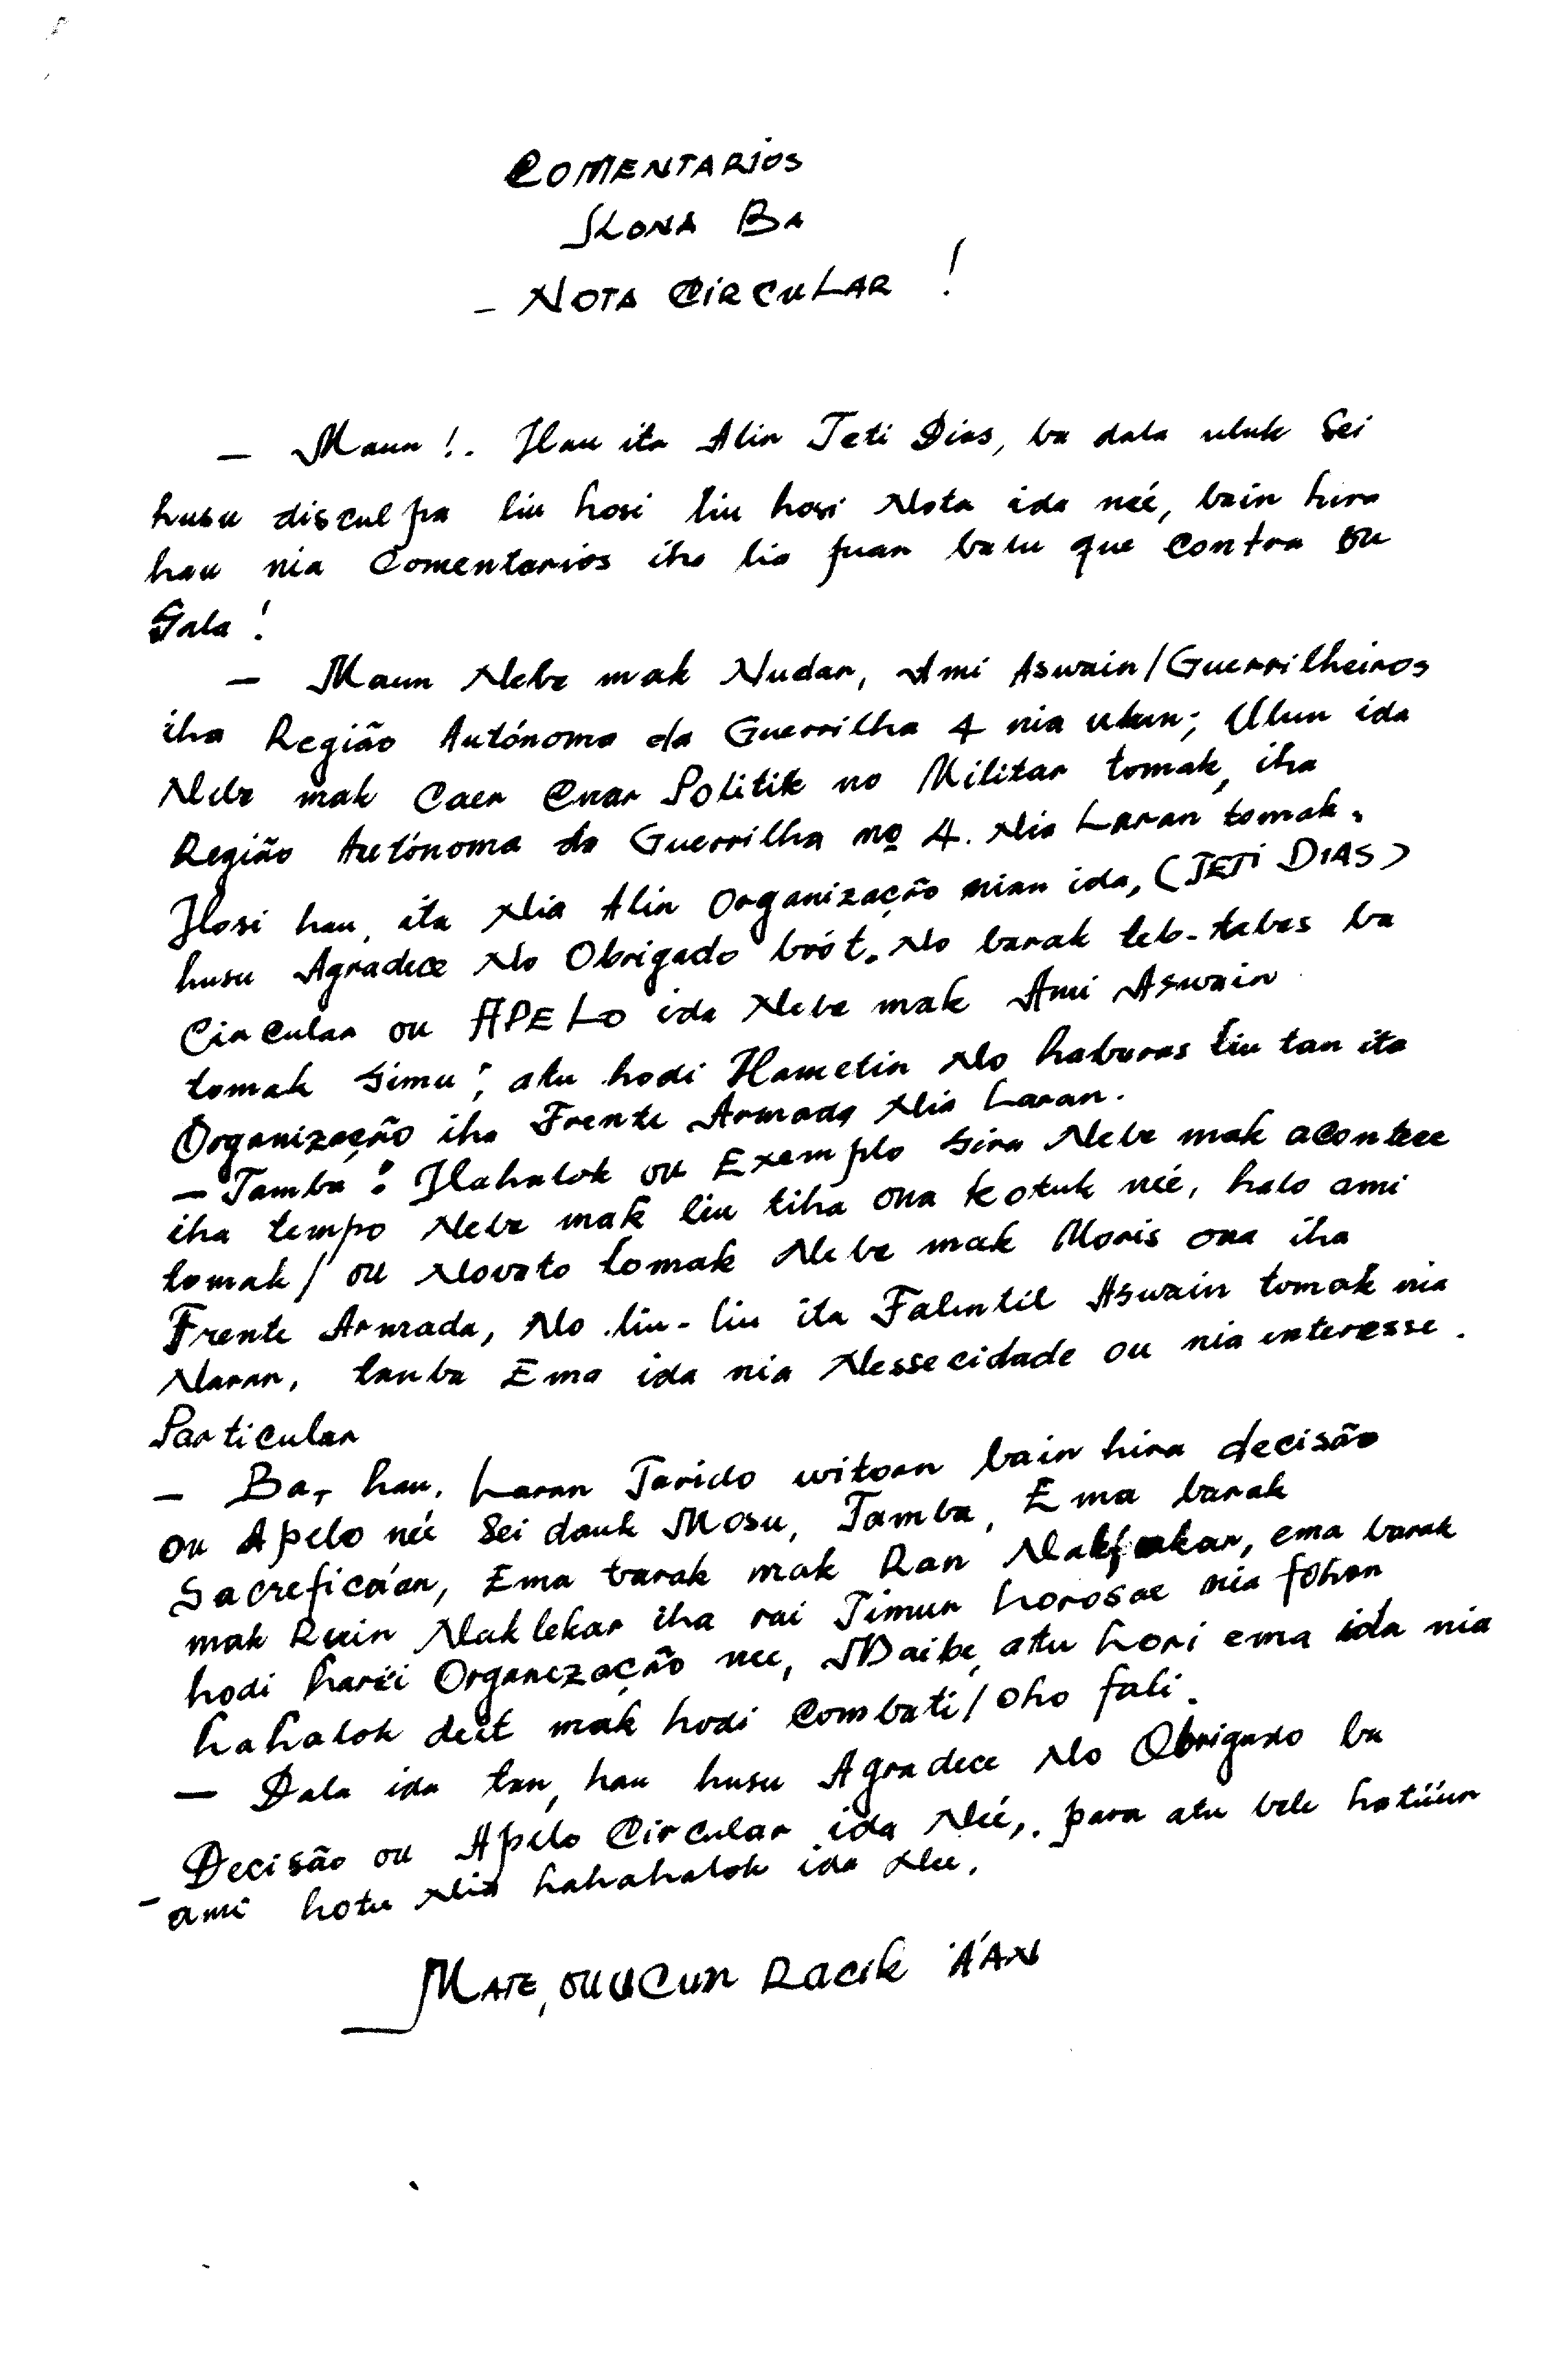 COMENTARIOS
KONA BA
- NOTA CIRCULAR !
- Maun !. Hau ita Alin Teti Dias, ba dala uluk Sei
husu disculpa liu hosi liu hosi Nota ida neé, bain hira
hau nia Comentarios iha lia fuan balu que contra ou
Sala !
- Maun Nebe mak Nudar, Ami Aswain/Guerrilheiros
iha Região Autónoma da Guerrilha 4 nia ulun; Ulun ida
Nebe mak Caer Cnar Politik no Militar tomak, iha
Região Autónoma da Guerrilha nº 4. Nia Laran tomak.
Hosi hau, ita Nia Alin Organização nian ida, (TETI DIAS)
husu Agradece No Obrigado boót. No barak teb-tebes ba
Circular ou APELO ida Nebe mak Ami Aswain
tomak Simu; atu hodi Hametin No haburas liu tan ita
Organização iha Frente Armada Nia Laran.
- Tamba: Hahalok ou Exemplo Sira Nebe mak acontece
iha tempo Nebe mak liu tiha ona kotuk neé, halo ami
tomak/ ou Novato tomak Nebe mak Moris ona iha
Frente Armada, No liu-liu ita Falintil Aswain tomak nia
Naran, tanba Ema ida nia Nessecidade ou nia interesse.
Particular
- Ba, hau, Laran Tarido uitoan bain hira decisão
ou Apelo neé Sei dauk Mosu, Tamba, Ema barak
Sacreficáan, Ema barak mak Ran Nakfakar, ema barak
mak Ruin Naklekar iha rai Timur horosae nia fohon
hodi harii Organezação nee, Maibe, atu hori ema ida nia
hahalok deit mak hodi Combati/ oho fali.
- Dala ida tan, hau husu Agradece No Obrigado ba
Decisão ou Apelo Circular ida Neé,. para atu bele hatúun
- ami hotu Nia hahahalok ida Nee.
MATE, OU UCUN RACIK ÁAN